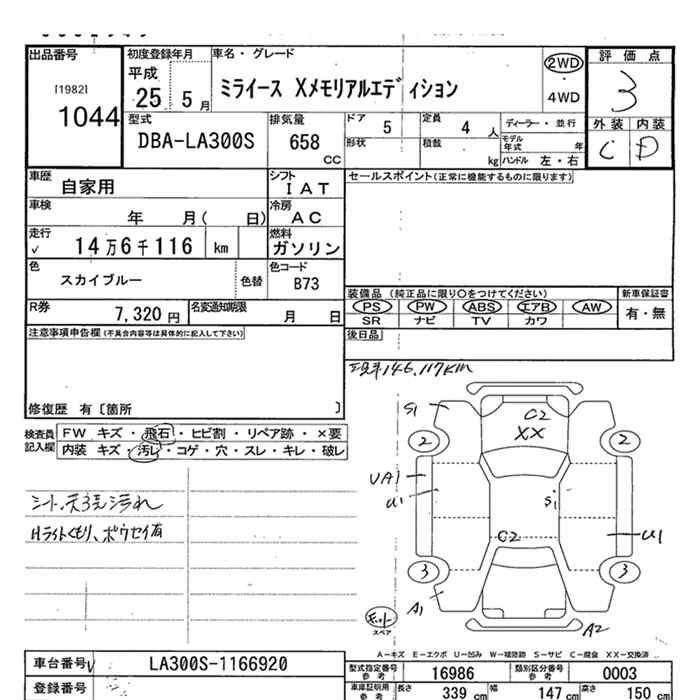 出品番号 初度登録年月 車名・グレード 評価点
[1982] 平成 2WD
1044 25 5月 ミライース Xメモリアルエディション 4WD 3
型式 排気量 ドア 5 定員 4人 ディーラー・並行 外装 内装
DBA-LA300S 658 CC 形状 積載 kg モデル年式 年 C D
ハンドル 左・右
車歴 自家用 シフト IAT セールスポイント(正常に機能するものに限ります)
車検 年 月( 日) 冷房 AC
走行 √ 14万6千116 km 燃料 ガソリン
色 スカイブルー 色替 色コード B73
装備品 (純正品に限り○をつけてください) 新車保証書
R券 7,320円 名変通知期限 月 日 PS PW ABS エアB AW 有・無
SR ナビ TV カワ
注意事項申告欄(不具合内容等は具体的に記入して下さい) 後日品
現車146,117KM
修復歴 有〔箇所 〕
検査員記入欄 FW キズ・飛石・ヒビ割・リペア跡・×要
内装 キズ・汚レ・コゲ・穴・スレ・キレ・破レ
シート、天張汚れ
Hライトくもり、ボウセイ有
S1 C2
XX
2 2
UA1
U1 S1
C2 U1
3 3
A1
スペア A2
A-キズ E-エクボ U-凹み W-補修跡 S-サビ C-腐食 XX-交換済
車台番号 √ LA300S-1166920 型式指定番号 参考 16986 類別区分番号 参考 0003
登録番号 車庫証明用 参考 長さ 339 cm 幅 147 cm 高さ 150 cm